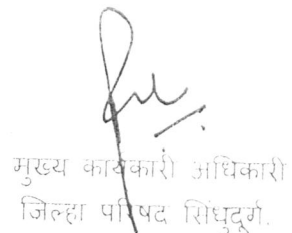 मुख्य कार्यकारी अधिकारी
जिल्हा परिषद सिंधुदूर्ग.